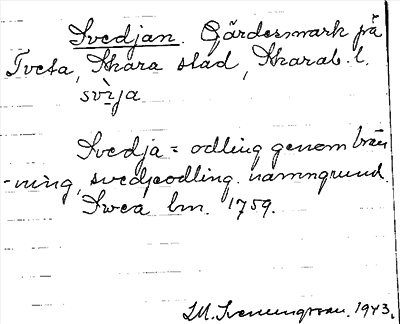 Svedjan. Gärdesmark på
Tveta, Skara stad, Skarab. l.
svìja
Svedja = odling genom brän
-ning, svedjeodling. namngrund.
Svea lm. 1759.
LM. Svenungsson. 1943.